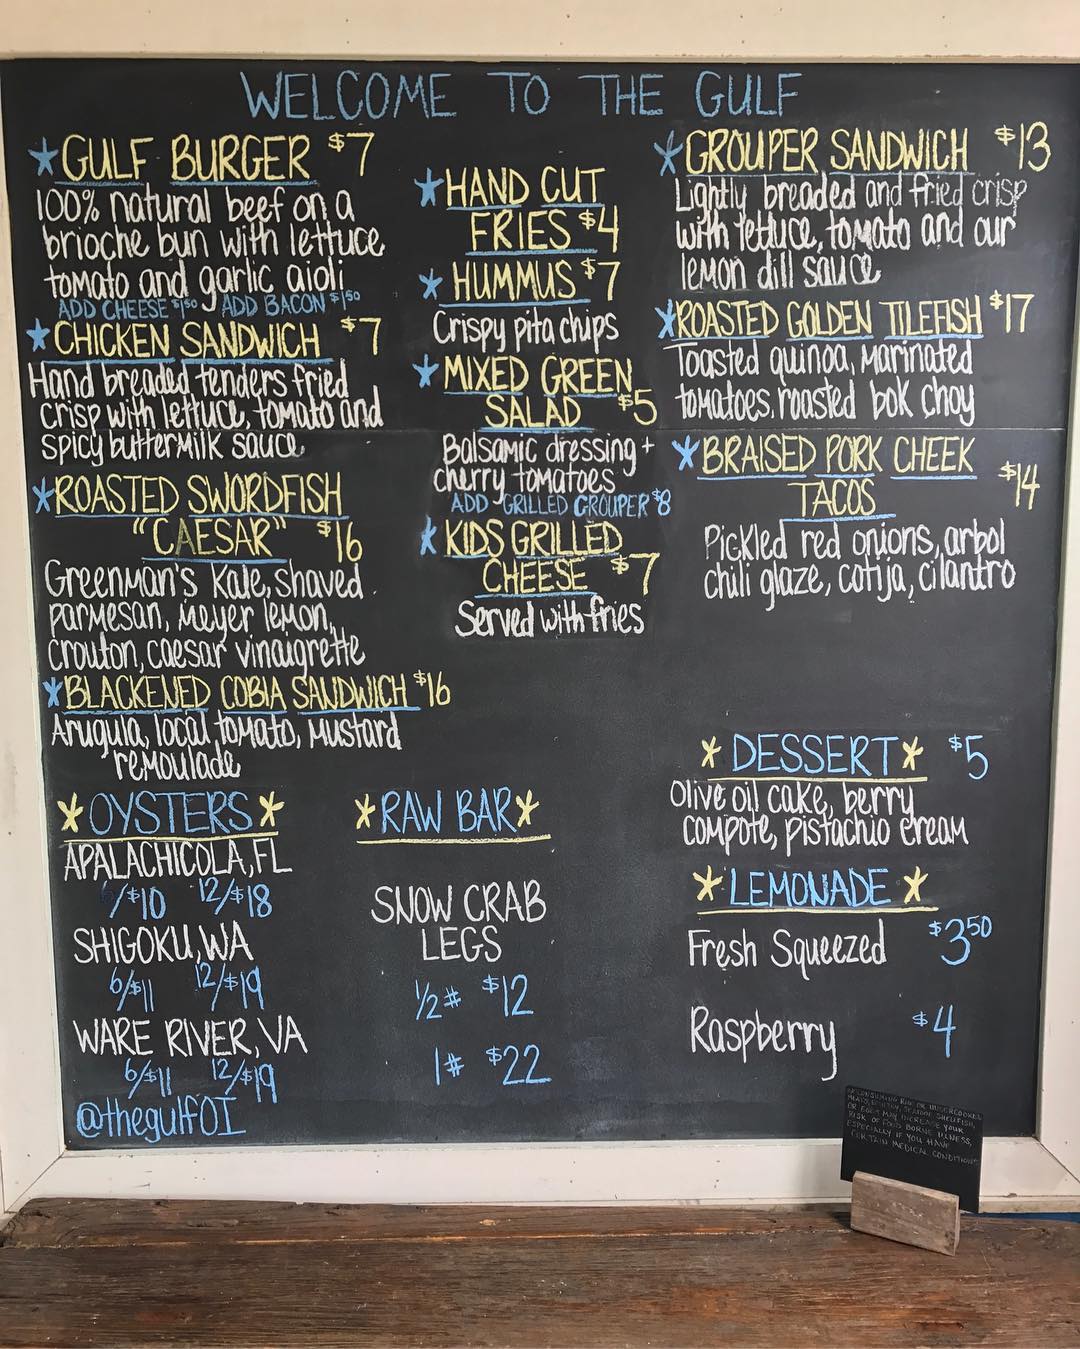 WELCOME TO THE GULF
*GULF BURGER $7
100% natural beef on a
brioche bun with lettuce
tomato and garlic aioli
ADD CHEESE $1.50 ADD BACON $1.50
*CHICKEN SANDWICH $7
Hand breaded tenders fried
crisp with lettuce, tomato and
spicy buttermilk sauce
*ROASTED SWORDFISH
"CAESAR" $16
Greenman's Kale, shaved
parmesan, Meyer lemon,
crouton, caesar vinaigrette
*BLACKENED COBIA SANDWICH $16
Arugula, local tomato, mustard
remoulade
*HAND CUT
FRIES $4
*HUMMUS $7
Crispy pita chips
*MIXED GREEN
SALAD $5
Balsamic dressing +
cherry tomatoes
ADD GRILLED GROUPER $8
*KIDS GRILLED
CHEESE $7
Served with fries
*GROUPER SANDWICH $13
Lightly breaded and fried crisp
with lettuce, tomato and our
lemon dill sauce
*ROASTED GOLDEN TILEFISH $17
Toasted quinoa, marinated
tomatoes, roasted bok choy
*BRAISED PORK CHEEK
TACOS $14
Pickled red onions, arbol
chili glaze, cotija, cilantro
*OYSTERS*
APALACHICOLA, FL
6/$10 12/$18
SHIGOKU, WA
6/$11 12/$19
WARE RIVER, VA
6/$11 12/$19
@thegulfOI
*RAW BAR*
SNOW CRAB
LEGS
1/2# $12
1# $22
*DESSERT* $5
Olive oil cake, berry
compote, pistachio cream
*LEMONADE*
Fresh Squeezed $3.50
Raspberry $4
CONSUMING RAW OR UNDERCOOKED
MEATS, POULTRY, SEAFOOD, SHELLFISH,
OR EGGS MAY INCREASE YOUR
RISK OF FOOD BORNE ILLNESS,
ESPECIALLY IF YOU HAVE
CERTAIN MEDICAL CONDITIONS